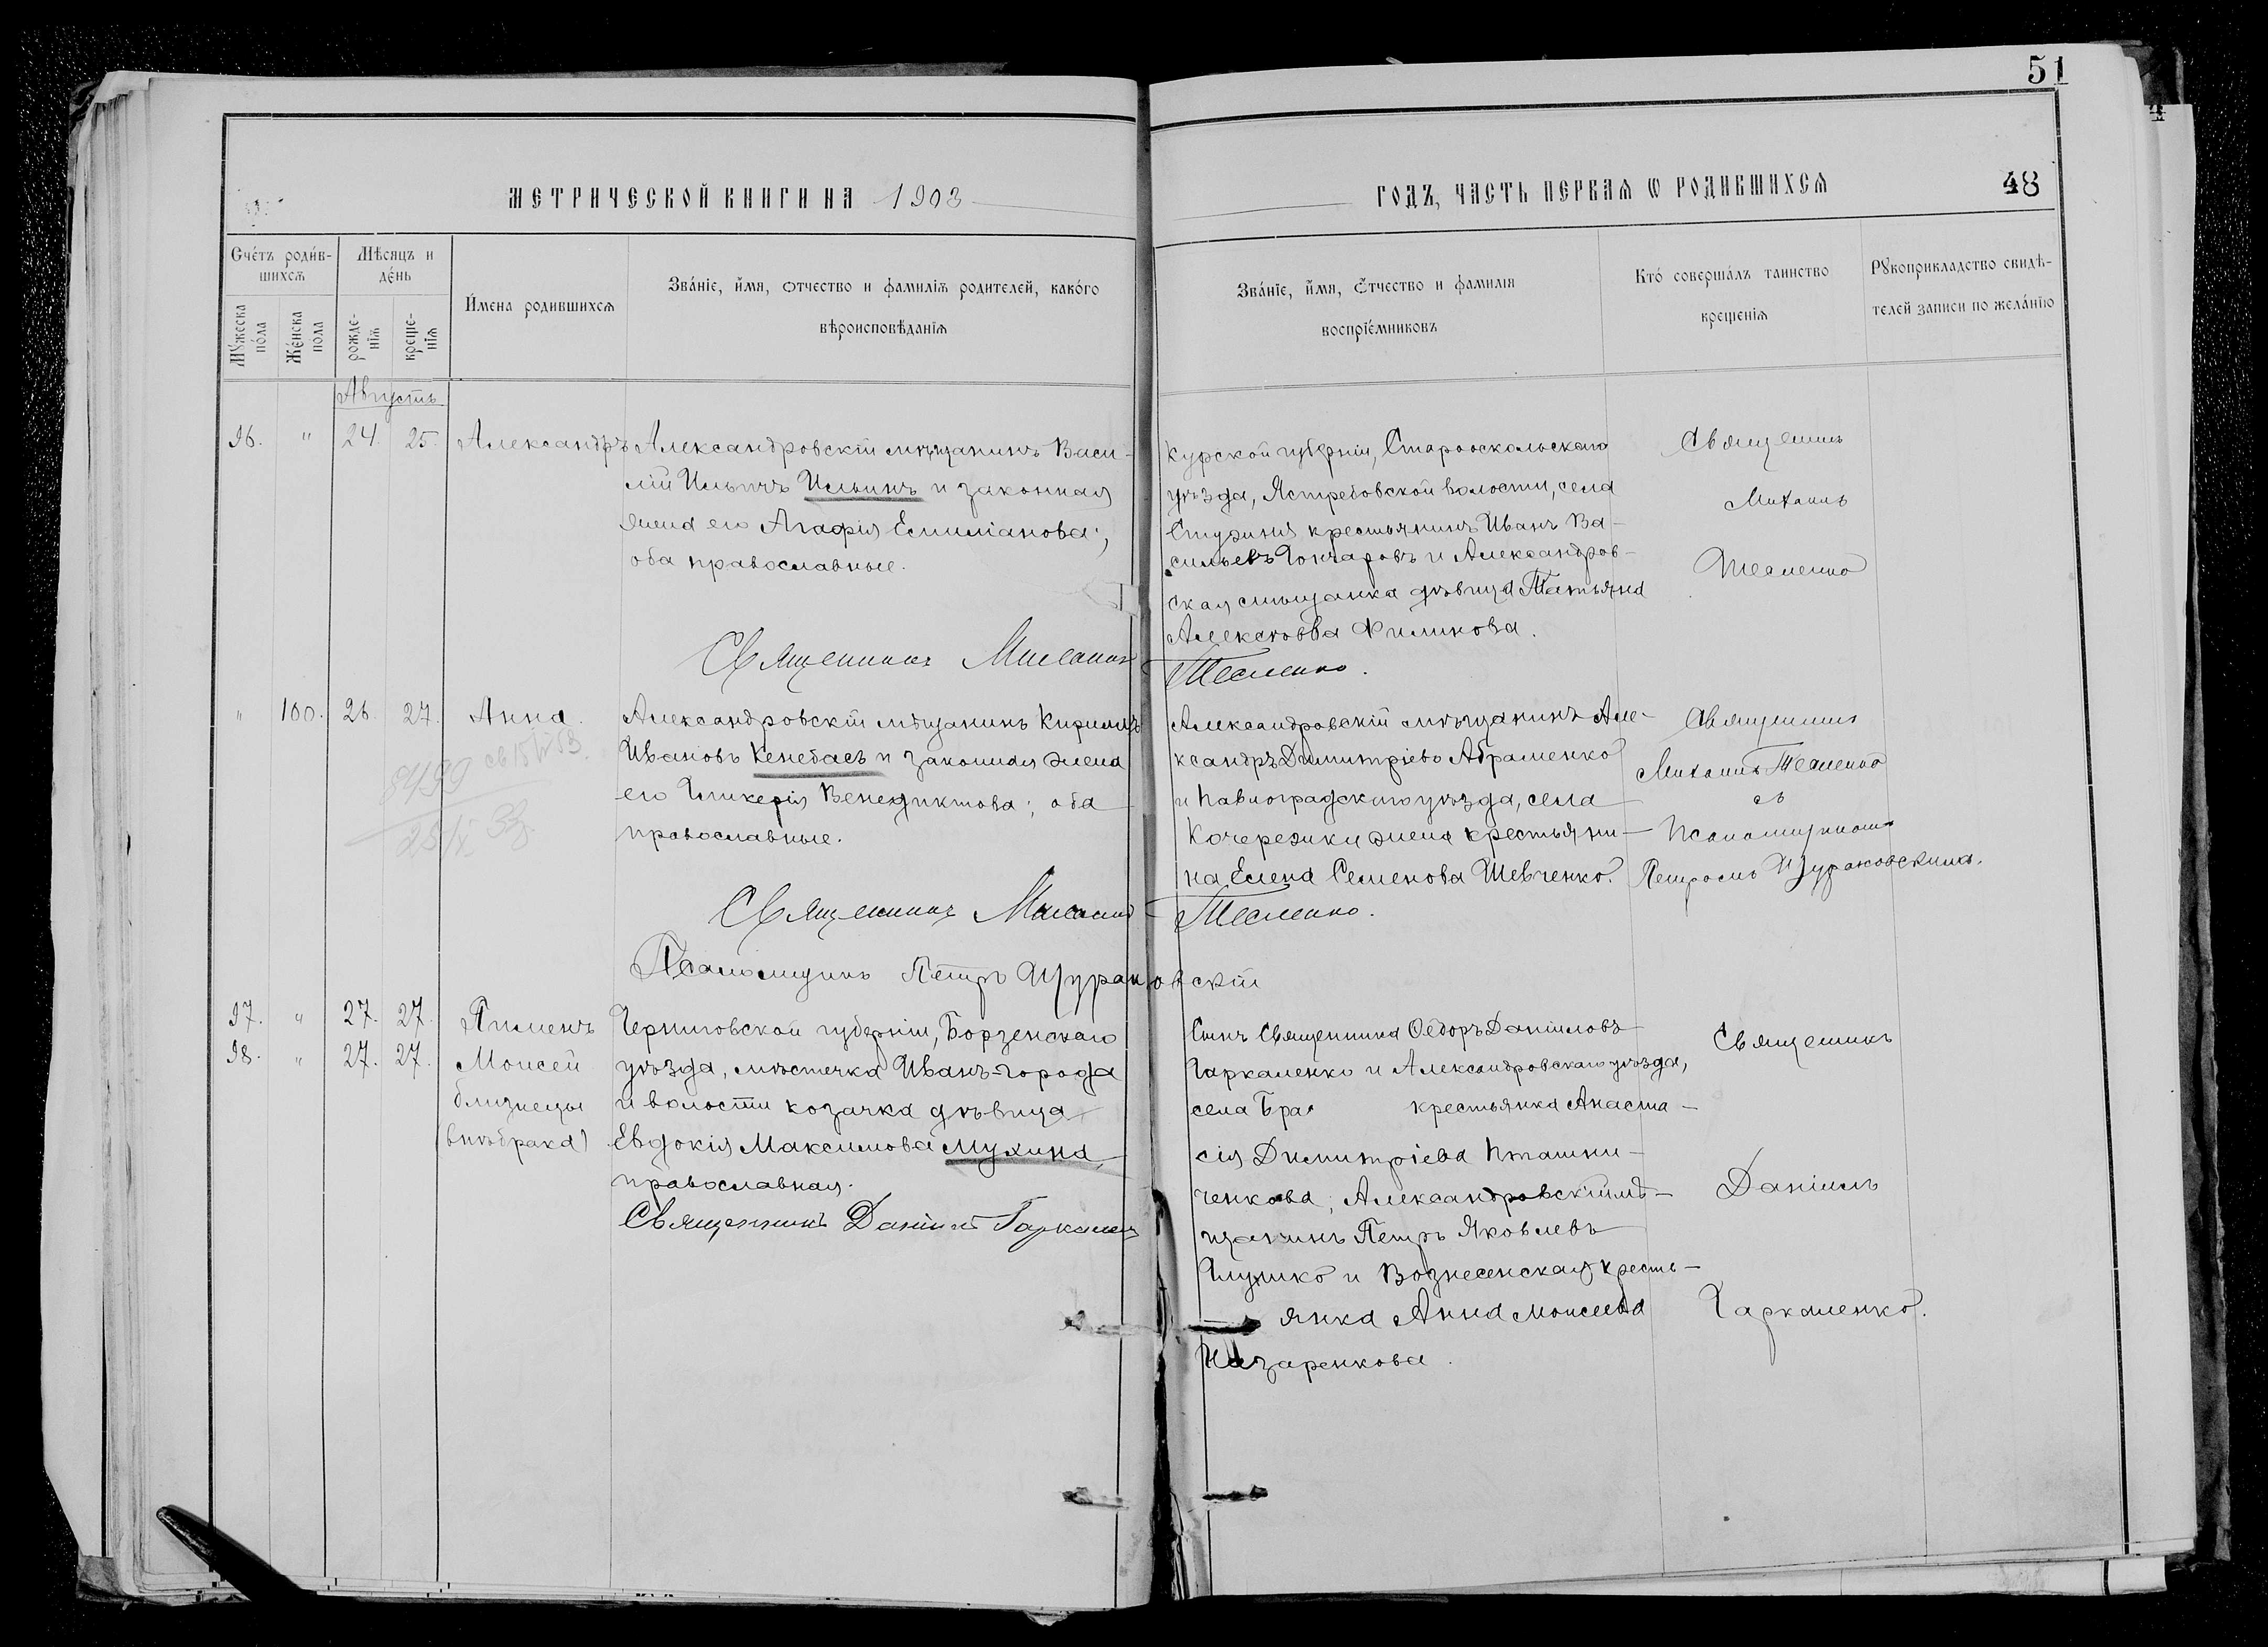 51
МЕТРИЧЕСКОЙ КНИГИ НА 1903
ГОДЪ, ЧАСТЬ ПЕРВАЯ Ѡ РОДИВШИХСЯ
48
Счéтъ роди́в-
шихсѧ
Мѣсяцъ и
дéнь
Мꙋ́жеска
пóла
Жéнска
пола
рожде-
нїѧ
креще-
нїѧ
И҆́мена родившихсѧ
Звáнїе, и҆́мя, отчество и фамилїѧ родителей, какóго
вѣроисповѣ́данїѧ
Звáнїе, и҆́мя, ѻ҆́тчество и фамилїя
воспрїéмниковъ
Ктó совершáлъ таинство
крещенїѧ
Рꙋкоприкладство свидѣ-
телей записи по желáнїю
Августъ
96. " 24. 25. Александръ
Александровскій мѣщанинъ Васи-
лій Ильичъ Ильинъ и законная
жена его Агафія Емиліанова;
оба православные.
Курской губерніи, Старооскольскаго
уѣзда, Ястребовской волости, села
крестьянинъ Иванъ Ва-
сильевъ Гончаровъ и Александров-
ская мѣщанка дѣвица Татьяна
Алексѣева Филинова.
Священникъ
Михаилъ
Тесленко
Священникъ Михаилъ Тесленко.
" 100. 26. 27. Анна.
Александровскій мѣщанинъ Кириллъ
Ивановъ Кенебасъ и законная жена
его Гликерія Венедиктова; оба
православные.
Александровскій мѣщанинъ Але-
ксандръ Димитріевъ Абраменко
и Павлоградскаго уѣзда, села
Кочережки жена крестьяни-
на Елена Семенова Шевченко.
Священникъ
Михаилъ Тесленко
съ
Псаломщикомъ
Петромъ Щурановскимъ.
8499
25/X 33.
Священникъ Михаилъ Тесленко.
Псаломщикъ Петръ Щурановскій
97. " 27. 27. Пименъ
98. " 27. 27. Моисей
близнецы
(внѣбрака)
Черниговской губерніи, Борзенскаго
уѣзда, мѣстечка Иванъ-города
и волости козачка дѣвица
Евдокія Максимова Мухина,
православная.
Священникъ Даніилъ Гаркален
Сынъ Священника Ѳеодоръ Даніиловъ
Гаркаленко и Александровскаго уѣзда,
села Бра крестьянка Анаста-
сія Димитріева Пташни-
ченкова; Александровскій мѣ-
щанинъ Петръ Яковлевъ
Глушко и Вознесенская кресть-
янка Анна Моисеева
Назаренкова.
Священникъ
Даніилъ
Гаркаленко.